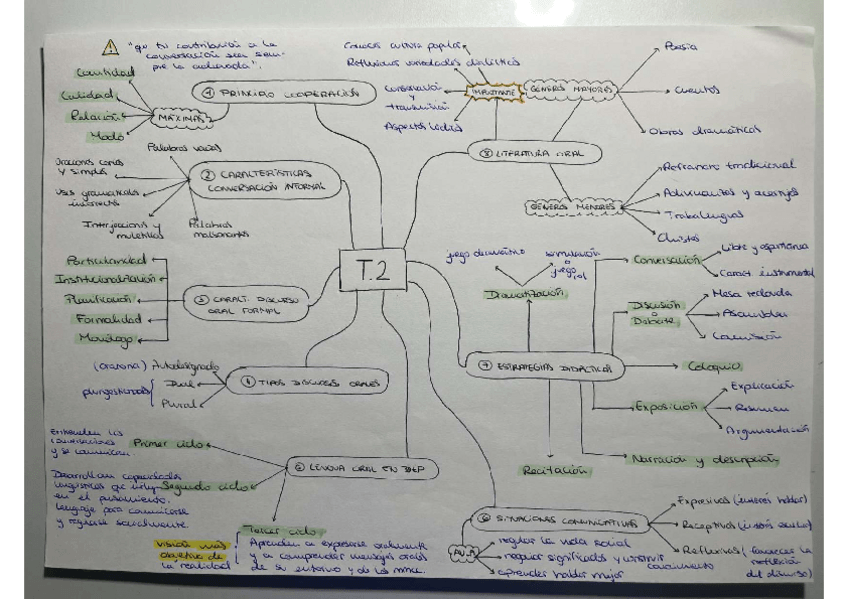 "que tu contribución a la
conversación sea siem-
pre la adecuada".
Cantidad
Calidad
Relación
Modo
MÁXIMAS
1 PRINCIPIO COOPERACIÓN
Palabras vacías
Oraciones cortas
y simples
Usos gramaticales
incorrectos
Interjecciones y
muletillas
Palabras
malsonantes
2 CARACTERÍSTICAS
CONVERSACIÓN INFORMAL
Particularidad
Institucionalización
Planificación
Formalidad
Monólogo
3 CARACT. DISCURSO
ORAL FORMAL
T.2
Autodesignado
Dual
Plural
plurigestionado
TIPOS DISCURSOS ORALES
LENGUA ORAL EN
Primer ciclo
Entienden los
y se comunican
Segundo ciclo
Desarrollan capacidades
lingüísticas que
en el pensamiento.
Lenguaje para comunicarse
y regularse socialmente.
Tercer ciclo
visión más
objetiva de
la realidad
Aprenden a expresarse oralmente
y a comprender mensajes orales
de su entorno y de los
Conocer cultura popular
Reflexionar variedades dialécticas
Conservación
y
transmisión
Aspectos lúdicos
IMPORTANTE
GÉNEROS MAYORES
Poesía
Cuentos
Obras dramáticas
8 LITERATURA ORAL
GÉNEROS MENORES
Refranero tradicional
Adivinanzas y acertijos
Trabalenguas
Chistes
juego dramático
simulación
o
juego
rol
Dramatización
Conversación
Libre y espontánea
Caract. instrumental
Discusión
o
Debate
Mesa redonda
Asamblea
Comisión
7 ESTRATEGIAS DIDÁCTICAS
Coloquio
Exposición
Explicación
Resumen
Argumentación
Narración y descripción
Recitación
6 SITUACIONES COMUNICATIVAS
Expresivas (interés hablar)
Receptivas (interés escuchar)
Reflexivas (favorecer la
reflexión
del discurso)
regular la vida social
negociar significados y construir
conocimiento
aprender hablar mejor